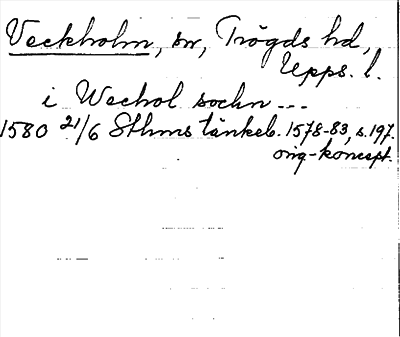 Veckholm, sn, Trögds hd,
Upps. l.
i Wechol sochn ...
1580 21/6 Sthms tänkeb. 1578-83, s. 197.
orig-koncept.